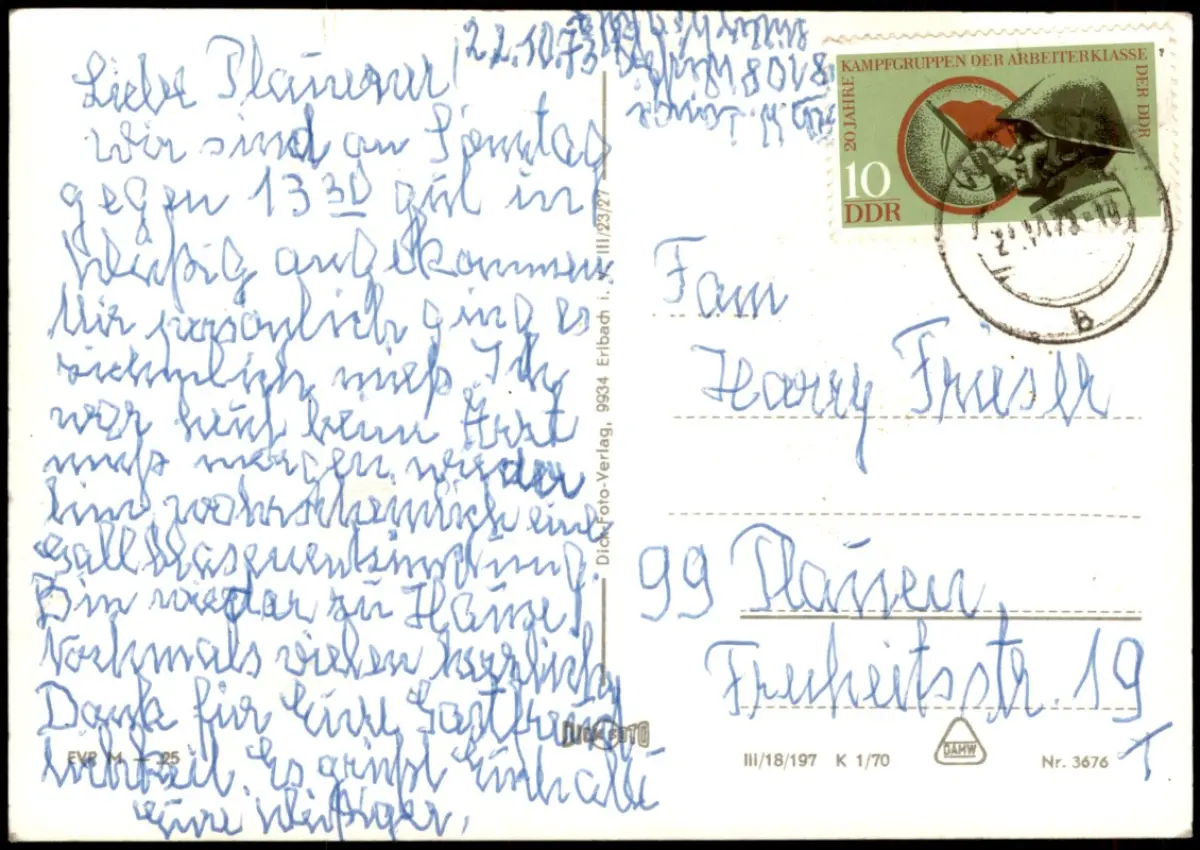 22.10.73
Liebe Plauener!
Wir sind am Sonntag
gegen 13 30 gut in
Weißig angekommen
Mir persönlich ging es
ziemlich mies. Ich
war heut beim Arzt
muß morgen wieder
hin wahrscheinlich eine
Gallblasenentzündung.
Bin wieder zu Hause!
Nochmals vielen herzlich
Dank für Eure Gastfreund
lichkeit. Es grüßt Euch alle
Eure Weißiger.
Dick-Foto-Verlag, 9934 Erlbach i. V. III/23/27
DICK FOTO
EVP M -.25
20 JAHRE KAMPFGRUPPEN DER ARBEITERKLASSE DER DDR
10
DDR
b
Fam
Harry Frieser
99 Plauen,
Freiheitsstr. 19
III/18/197 K 1/70
DAMW
Nr. 3676